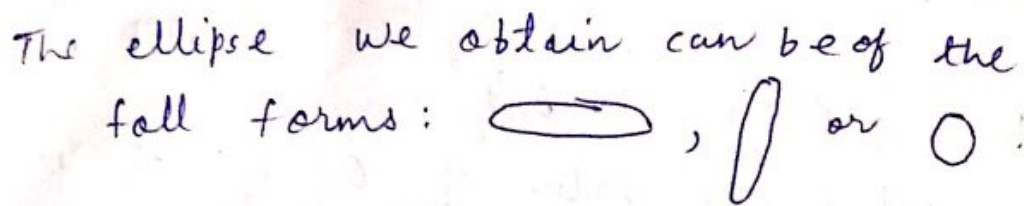 The ellipse we obtain can be of the
foll forms: , or